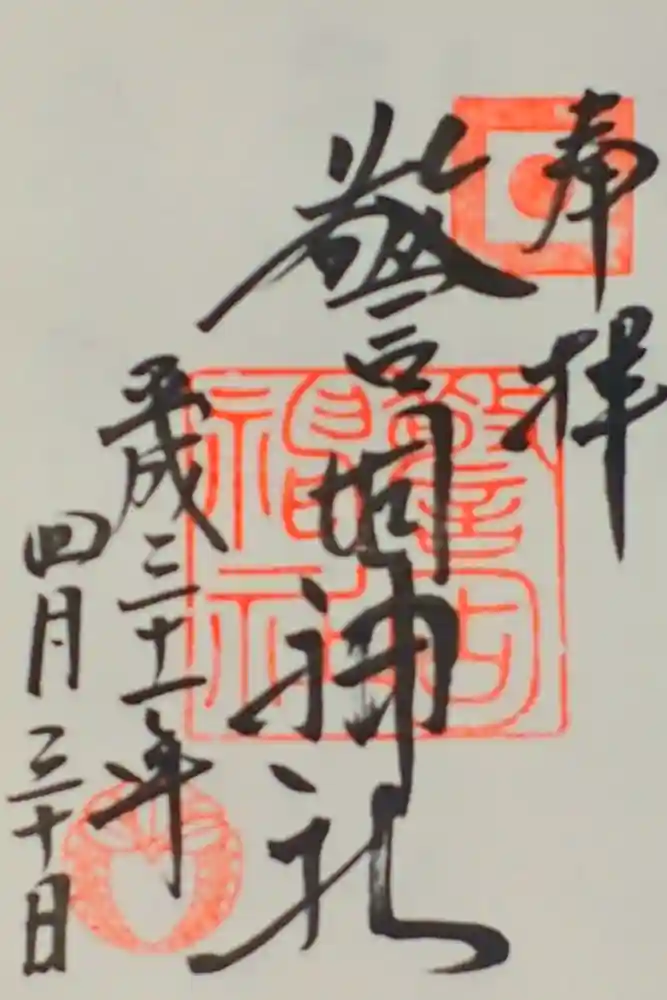 奉拝
警固神社
平成三十一年
四月三十日